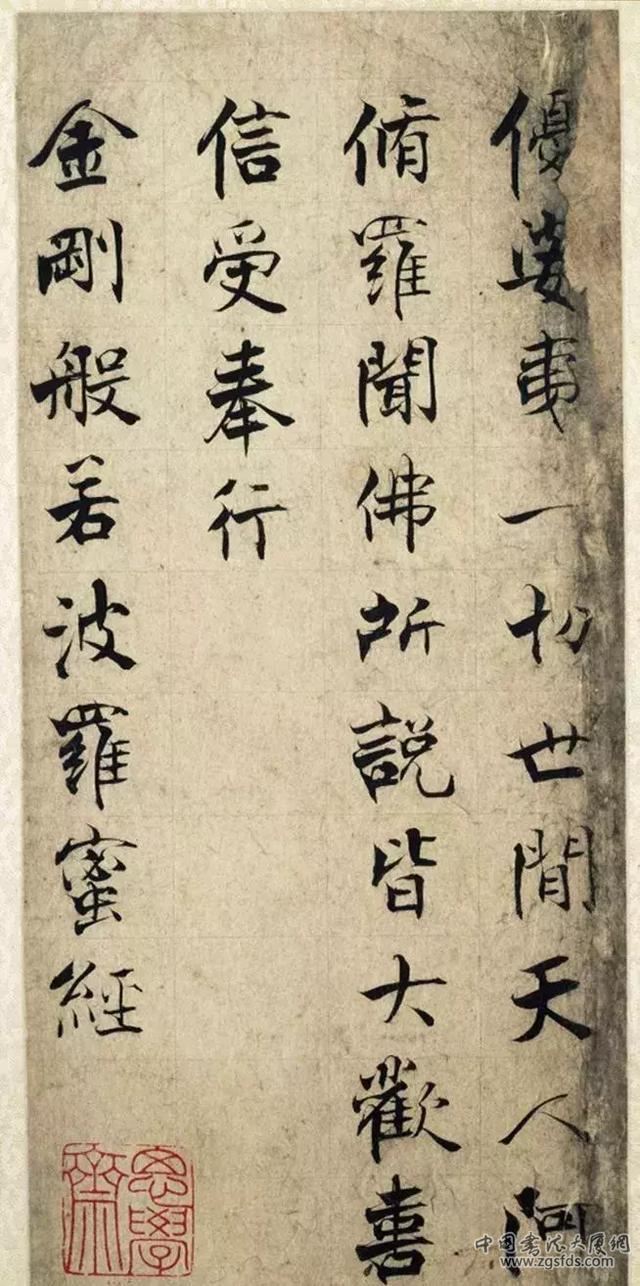 優婆夷一切世間天人阿
脩羅聞佛所說皆大歡喜
信受奉行
金剛般若波羅蜜經
思學齋
中国书法大厦網
www.zgsfds.com